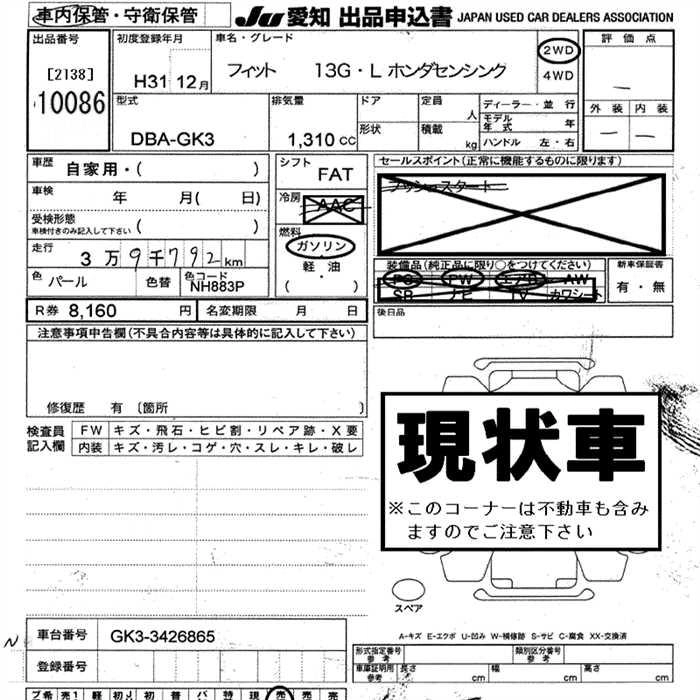 車内保管・守衛保管 JU 愛知 出品申込書 JAPAN USED CAR DEALERS ASSOCIATION
出品番号 初度登録年月 車名・グレード 評価点
[2138] H31 12月 フィット 13G・L ホンダセンシング 2WD
10086 4WD
外装 内装
型式 排気量 ドア 定員 人 ディーラー・並行
モデル年式 年
DBA-GK3 1,310 cc 形状 積載 kg ハンドル 左・右
車歴 自家用・( ) シフト FAT セールスポイント(正常に機能するものに限ります)
車検 年 月( 日) 冷房 AAC プッシュスタート
受検形態 ( )
車検付きのみ記入して下さい
燃料 ガソリン
軽・油
( )
走行 3万9千792km
装備品(純正品に限り○をつけてください) 新車保証書
PS PW エアB AW
SR ナビ TV カワシート
有・無
色 パール 色替 色コード NH883P
R券 8,160 円 名変期限 月 日 後日品
注意事項申告欄(不具合内容等は具体的に記入して下さい)
修復歴 有 〔箇所 〕
検査員記入欄 FW キズ・飛石・ヒビ割・リペア跡・X要
内装 キズ・汚レ・コゲ・穴・スレ・キレ・破レ
現状車
※このコーナーは不動車も含み
ますのでご注意下さい
スペア
A-キズ E-エクボ U-凹み W-補修跡 S-サビ C-腐食 XX-交換済
N 車台番号 GK3-3426865
登録番号
形式指定番号 参考 類別区分番号 参考
車庫証明用 参考 長さ cm 幅 cm 高さ cm